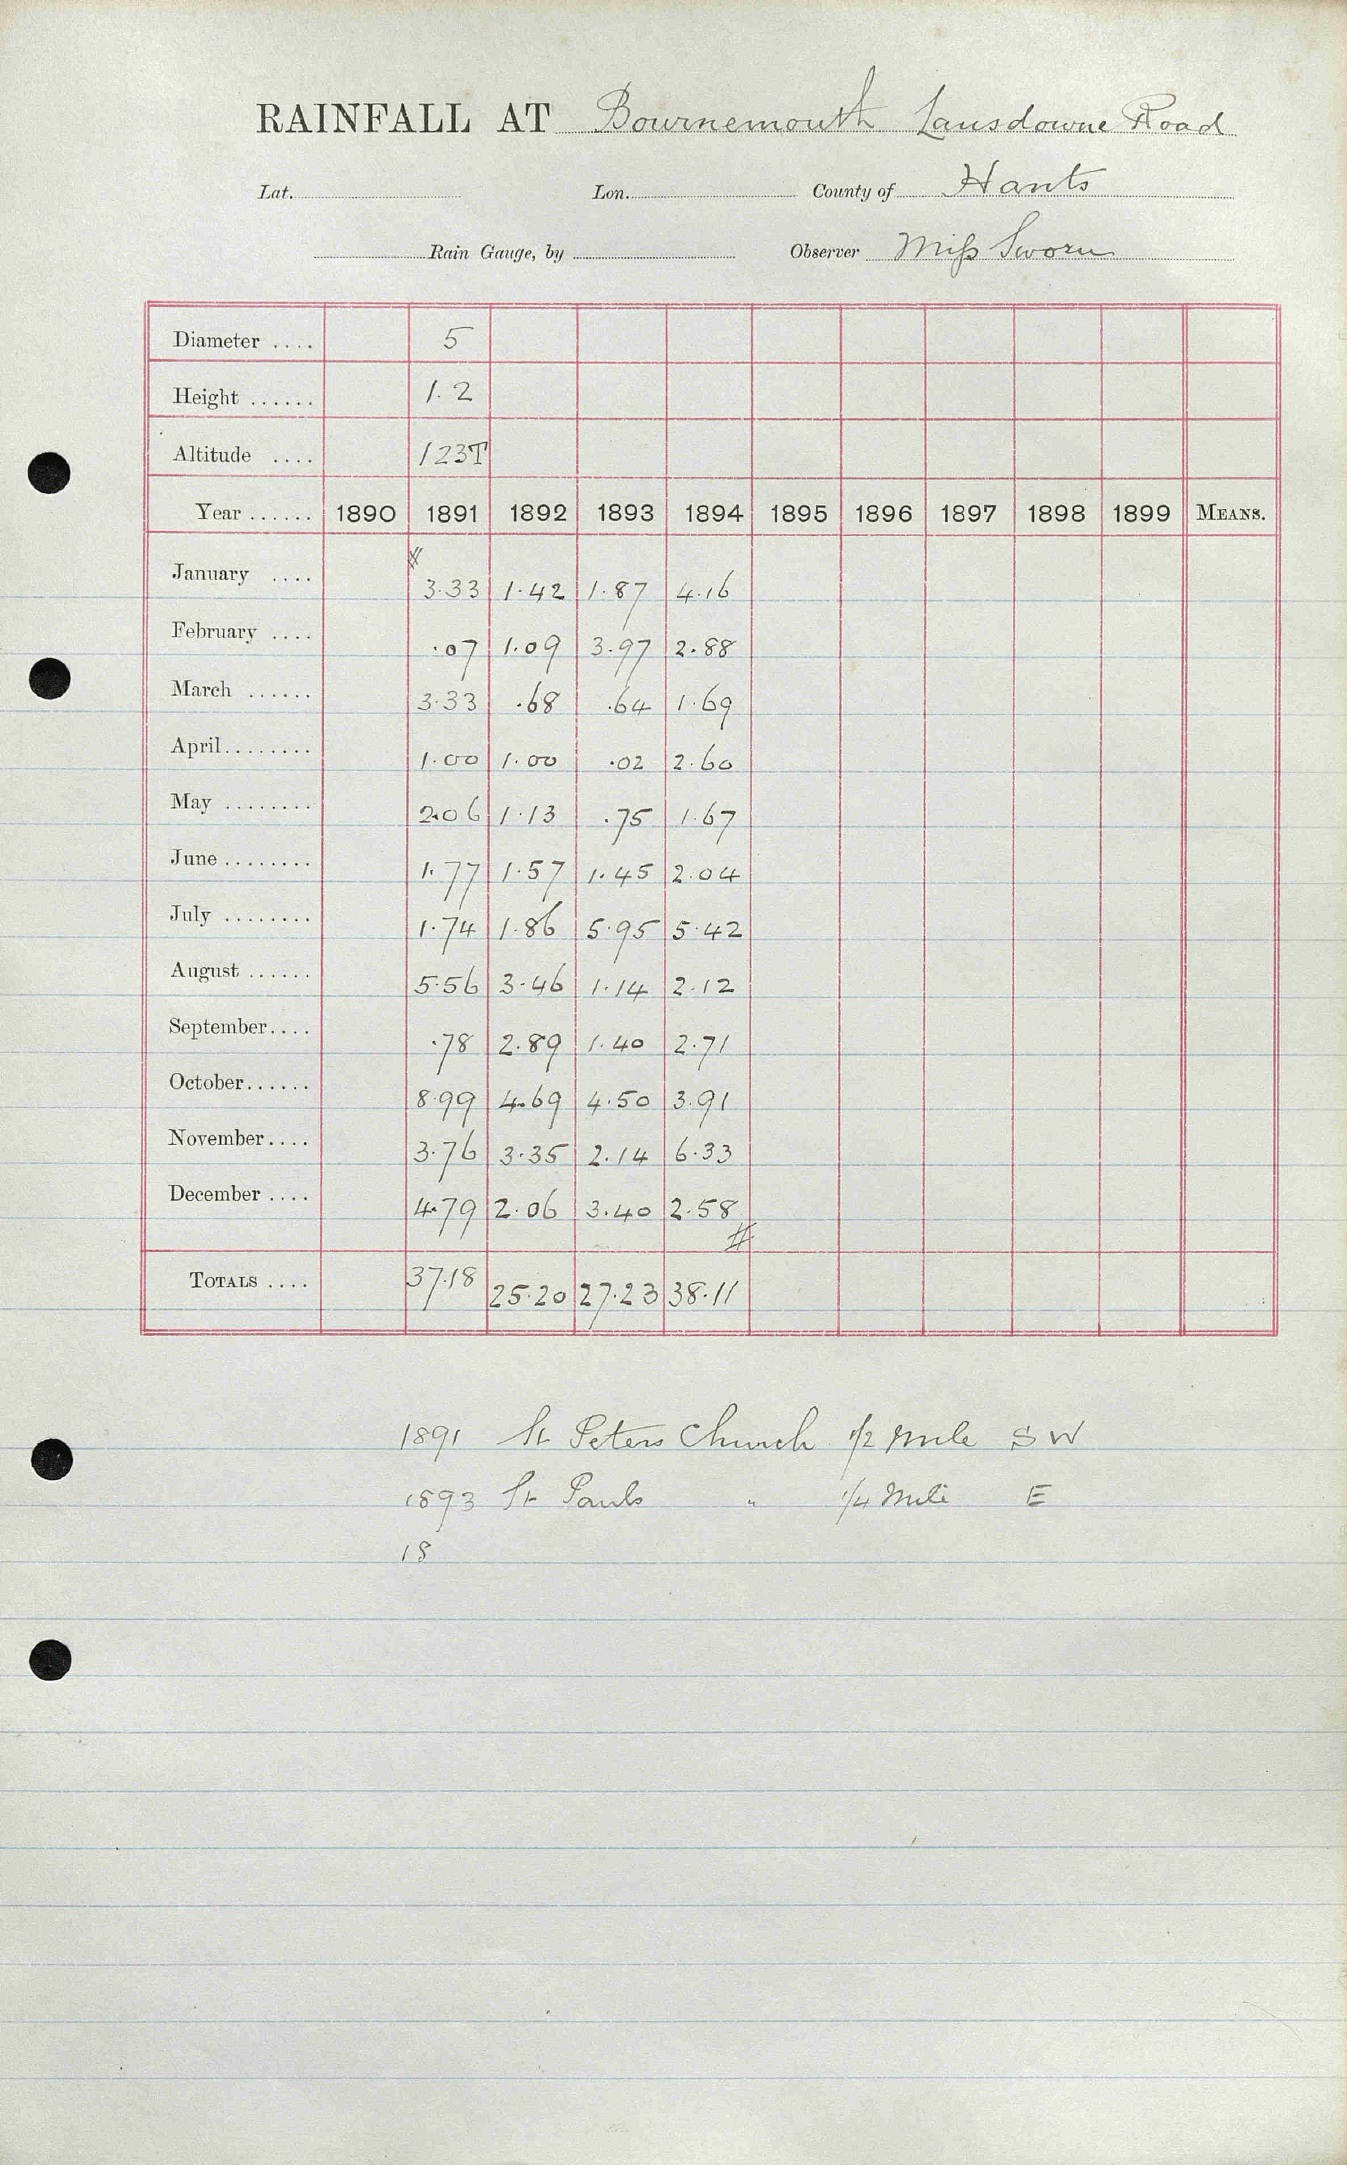 RAINFALL AT Bournemouth Lansdowne Road
Lat. Lon. County of Hants
Rain Gauge, by Observer Miss Sworn
Diameter .... 5
Height ...... 1.2
Altitude .... 123T
Year ...... 1890 1891 1892 1893 1894 1895 1896 1897 1898 1899 MEANS.
January .... 3.33 1.42 1.87 4.16
February .... .07 1.09 3.97 2.88
March ...... 3.33 .68 .64 1.69
April........ 1.00 1.00 .02 2.60
May ........ 2.06 1.13 .75 1.67
June ........ 1.77 1.57 1.45 2.04
July ........ 1.74 1.86 5.95 5.42
August ...... 5.56 3.46 1.14 2.12
September.... .78 2.89 1.40 2.71
October...... 8.99 4.69 4.50 3.91
November.... 3.76 3.35 2.14 6.33
December .... 4.79 2.06 3.40 2.58
TOTALS .... 37.18 25.20 27.23 38.11
1891 St Peters Church 1/2 Mile S W
1893 St Pauls " 1/4 Mile E
18